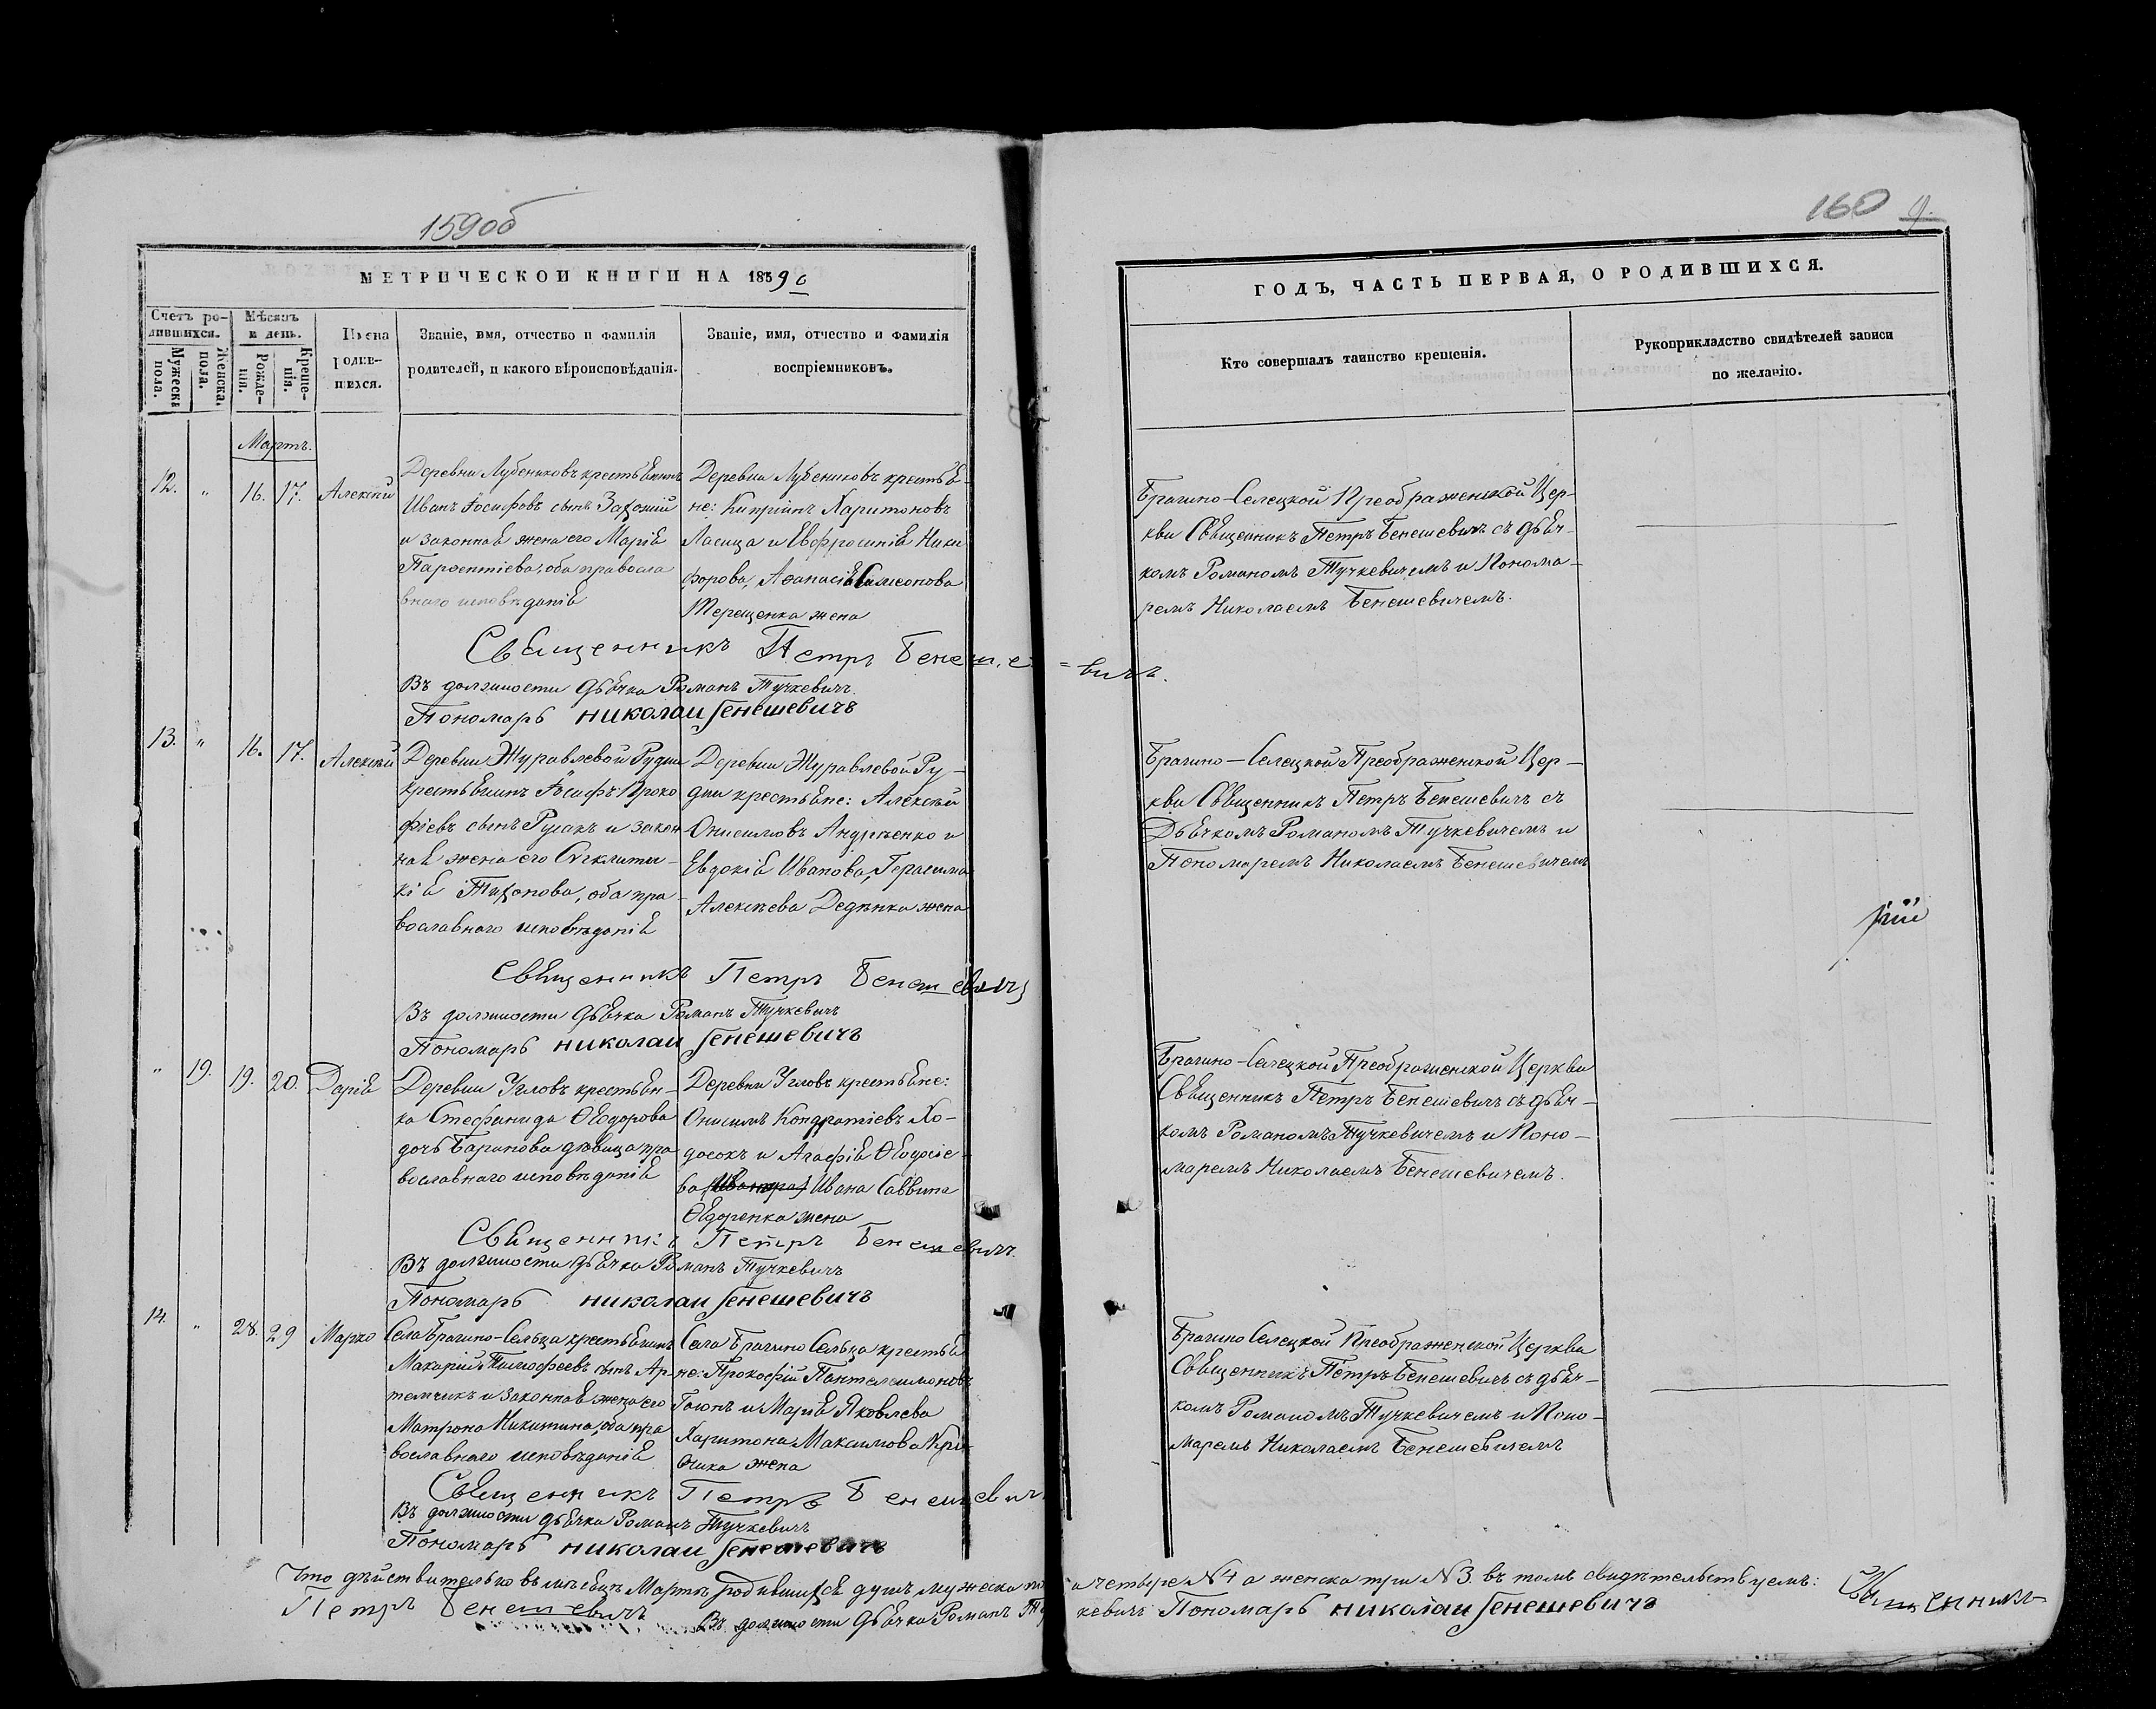 159об
МЕТРИЧЕСКОЙ КНИГИ НА 1859й
Счетъ ро-
дившихся.
Мѣсяцъ
и день.
Мужеска
пола.
Женска.
пола.
Рожде-
нія.
Креще-
нія.
Имена
родив-
шихся.
Званіе, имя, отчество и фамилія
родителей, и какого вѣроисповѣданія.
Званіе, имя, отчество и фамилія
воспріемниковъ.
Мартъ.
12. „ 16. 17. Алексій
Деревни Лубениковъ крестьянинъ
Иванъ Іосифовъ сынъ Захожій
и законная жена его Марія
Парѳентіева, оба правосла
внаго исповѣданія
Деревни Лубениковъ крестья-
не: Кипріянъ Харитоновъ
Ласица и Евфросинія Ники
форова, Аѳанасія Симеонова
Терещенка жена
Священникъ Петръ Бенеше=вичъ.
Въ должности дьячка Романъ Тучкевичъ.
Пономарь николаи бенешевичъ
13. „ 16. 17. Алексій
Деревни Журавлевой Рудни
крестьянинъ Іосифъ Проко
фіевъ сынъ Русакъ и закон
ная жена его Сѵгклити-
кія Тихонова, оба пра-
вославнаго исповѣданія
Деревни Журавлевой Ру-
дни крестьяне: Алексѣй
Онисимовъ Андрѣенко и
Евдокія Иванова, Герасима
Алексѣева Дедѣнка жена
Священникъ Петръ Бенешевичъ
Въ должности дьячка Романъ Тучкевичъ
Пономарь николаи бенешевичъ
„ 19. 19. 20. Дарія
Деревни Угловъ крестьян-
ка Стефанида Ѳеодорова
дочь Баранова дѣвица пра
вославнаго исповѣданія
Деревни Угловъ крестьяне:
Онисимъ Кондратіевъ Хо-
досокъ и Агафія Ѳеодосіе-
ва Ивана Саввина
Ѳедоренка жена
Священникъ Петръ Бенешевичъ.
Въ должности дьячка Романъ Тучкевичъ
Пономарь николаи бенешевичъ
14. „ 28. 29 Марко
Села Брагино-Сельца крестьянинъ
Макарій Тимофеевъ сынъ Ар-
темчикъ и законная жена его
Матрона Никитина, оба пра
вославнаго исповѣданія
Села Брагино Сельца крестья
не: Прокофій Пантелеимоновъ
Гоюнъ и Марія Яковлева
Харитона Максимова Кри
чика жена
Священникъ Петръ Бенешевичъ
Въ должности дьячка Романъ Тучкевичъ
Пономарь николаи бенешевичъ
160 9.
ГОДЪ, ЧАСТЬ ПЕРВАЯ, О РОДИВШИХСЯ.
Кто совершалъ таинство крещенія.
Рукоприкладство свидѣтелей записи
по желанію.
Брагино-Селецкой Преображенской Цер-
кви Священникъ Петръ Бенешевичъ съ дьяч-
комъ Романомъ Тучкевичемъ и Понома-
ремъ Николаемъ Бенешевичемъ.
Брагино-Селецкой Преображенской Цер-
кви Священникъ Петръ Бенешевичъ съ
Дьячкомъ Романомъ Тучкевичемъ и
Пономаремъ Николаемъ Бенешевичемъ
Брагино-Селецкой Преображенской Церкви
Священникъ Петръ Бенешевичъ съ дьяч-
комъ Романомъ Тучкевичемъ и Поно-
маремъ Николаемъ Бенешевичемъ.
Брагино Селецкой Преображенской Церкви
Священникъ Петръ Бенешевичъ съ дьяч-
комъ Романомъ Тучкевичемъ и Поно-
маремъ Николаемъ Бенешевичемъ
Что дѣйствительно въ мѣсяцѣ Мартѣ родившихся душъ мужеска четыре №4 а женска три №3. въ томъ свидѣтельствуемъ: Священникъ
Петръ Бенешевичъ Въ должности дьячка Романъ Тучкевичъ Пономарь николаи бенешевичъ